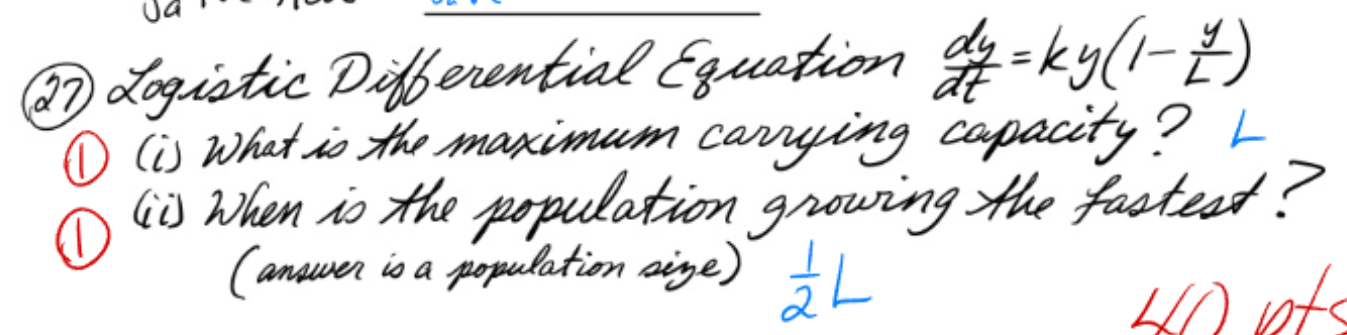 (27) Logistic Differential Equation dy/dt = ky(1 - y/L)
(1) (i) What is the maximum carrying capacity? L
(1) (ii) When is the population growing the fastest?
(answer is a population size) 1/2 L
40 pts